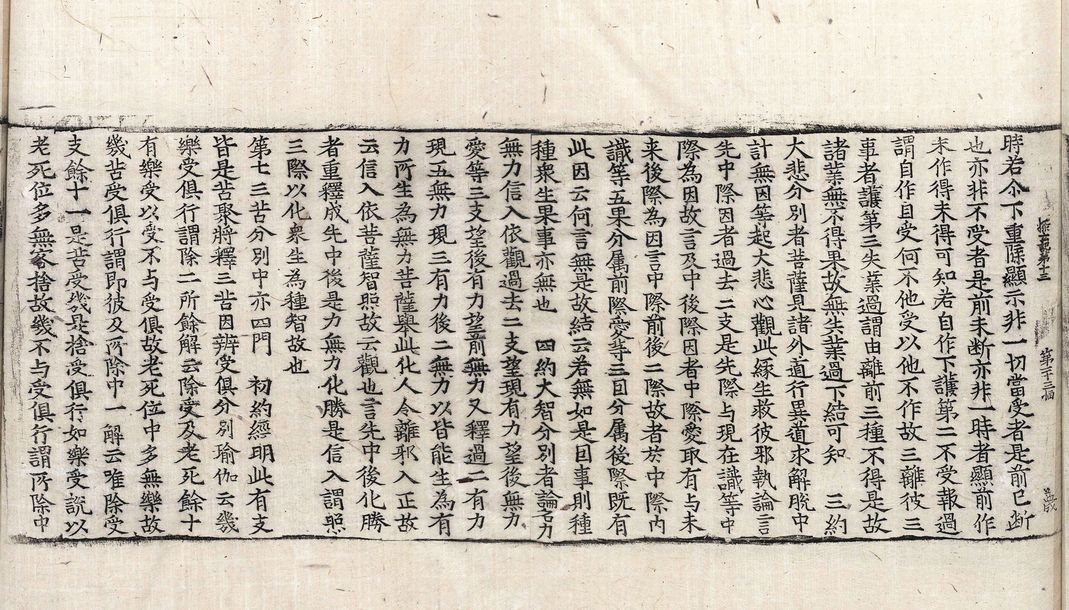 時若尒下重隟顯示非一切當受者是前已断
也亦非不受者是前未断亦非一時者顯前作
未作得未得可知若自作下護第二不受報過
謂自作自受何不他受以他不作故三離彼三
車者護第三失業過謂由離前三種不得是故
諸業無不得果故無失業過下結可知　三約
大悲分別者菩薩具諸外道行異道求解脫中
計無因等起大悲心觀此緣生救彼邪執論言
先中際因者過去二支是先際与現在識等中
際為因故言及中後際因者中際愛取有与未
来後際為因言中際前後二際故者於中際內
識等五果分属前際愛等三因分属後際既有
此因云何言無是故結云若無如是因事則種
種衆生果事亦無也　四約大智分別者論名力
無力信入依觀過去二支望現有力望後無力
愛等三支望後有力望前無力又釋過二有力
現五無力現三有力後二無力以皆能生為有
力所生為無力菩薩舉此化人令離邪入正故
云信入依菩薩智照故云觀也言先中後化勝
者重釋成先中後是力無力化勝是信入謂照
三際以化衆生為種智故也
第七三苦分別中亦四門　初約經明此有支
皆是苦聚將釋三苦因辨受俱分別瑜伽云幾
樂受俱行謂除二所餘解云除受及老死餘十
有樂受以受不与受俱故老死位中多無樂故
幾苦受俱行謂即彼及所除中一解云唯除受
支餘十一是苦受幾是捨受俱行如樂受說以
老死位多無容捨故幾不与受俱行謂所除中